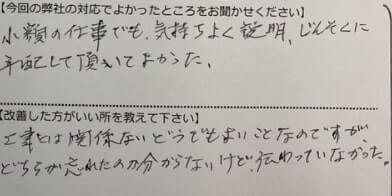 【今回の弊社の対応でよかったところをお聞かせください】
小額の仕事でも、気持ちよく説明、じんそくに
手配して頂いてよかった、
【改善した方がいい所を教えて下さい】
工事とは関係ないどうでもよいことなのですが
どちらが忘れたのか分からないけど、伝わっていなかった。